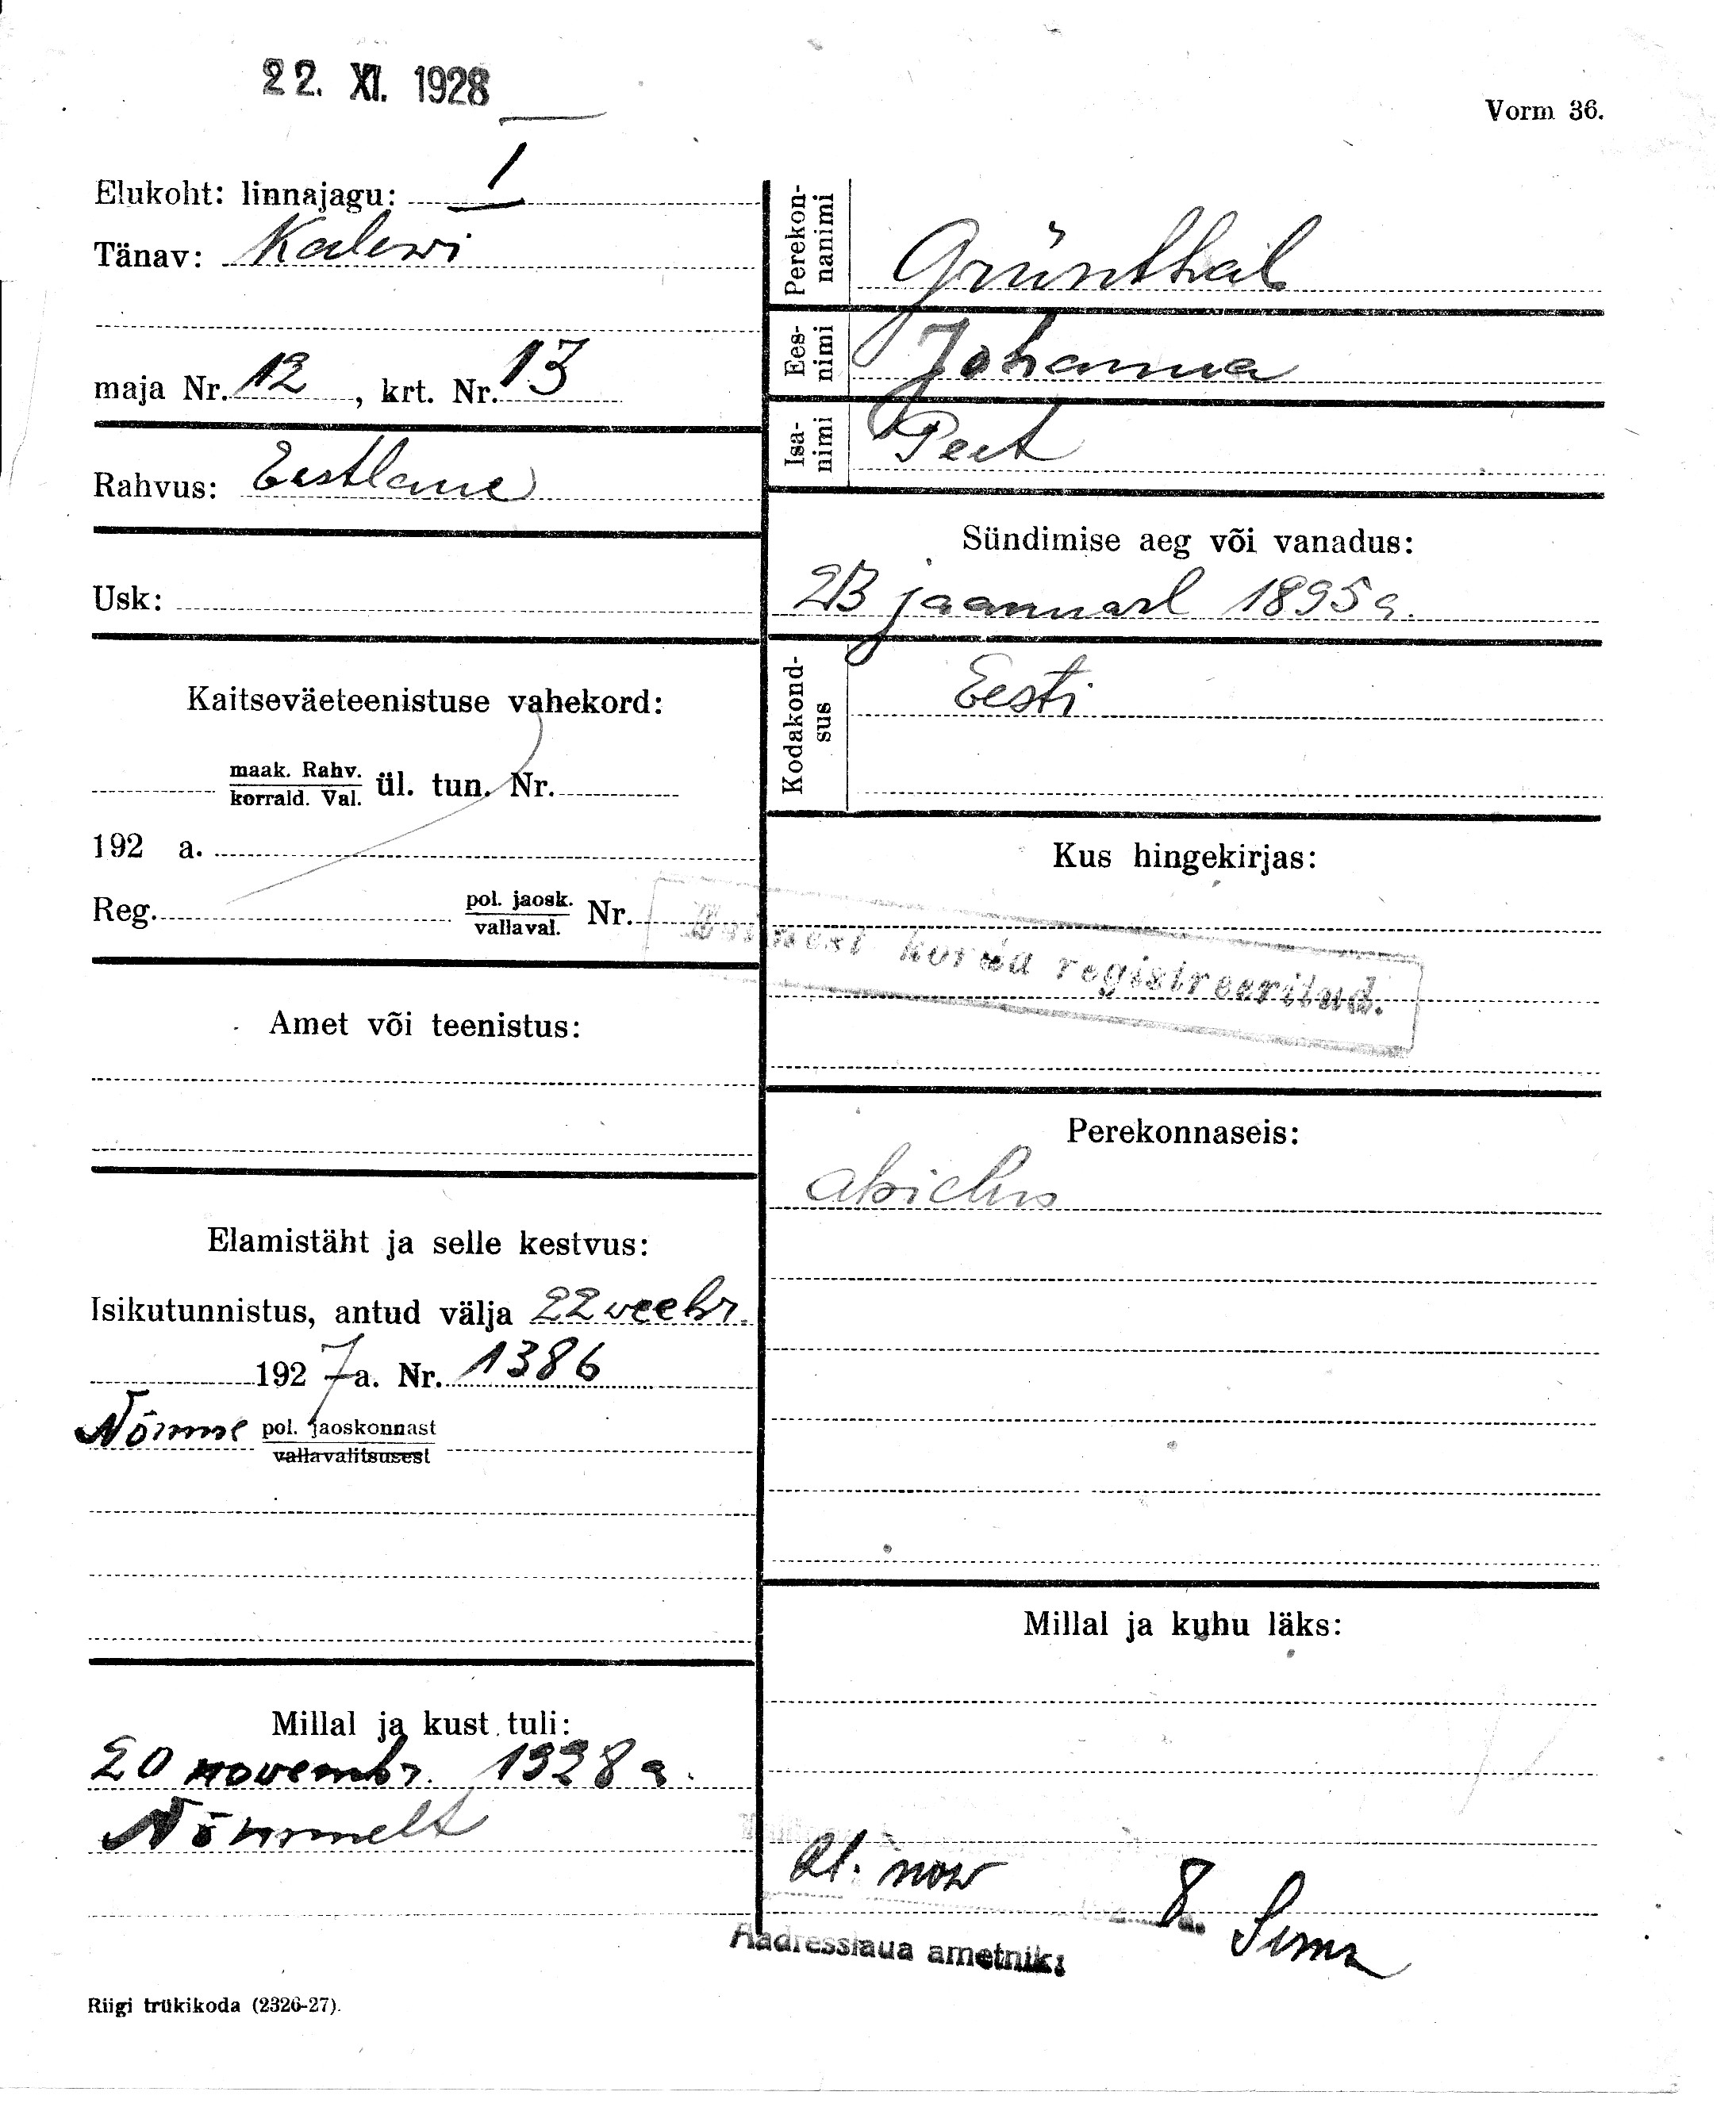 22. XI. 1928
Vorm 36.
Elukoht: linnajagu: I
Tänav: Kalewi
maja Nr. 12, krt. Nr. 13
Rahvus: Eestlane
Usk:
Kaitseväeteenistuse vahekord:
maak. Rahv.
korrald. Val. ül. tun. Nr.
192 a.
Reg. pol. jaosk.
vallaval. Nr.
Amet või teenistus:
Elamistäht ja selle kestvus:
Isikutunnistus, antud välja 22 veebr.
1927 a. Nr. 1386
Nõmme pol. jaoskonnast
vallavalitsusest
Millal ja kust tuli:
20 novembr. 1928 a.
Nõmmelt
Riigi trükikoda (2326-27).
Perekon-
nanimi
Grünthal
Ees-
nimi
Johanna
Isa-
nimi
Peet
Sündimise aeg või vanadus:
23 jaanuaril 1895 a.
Kodakond-
sus
Eesti
Kus hingekirjas:
korda registreeritud.
Perekonnaseis:
abielus
Millal ja kuhu läks:
21. now 8
Aadresslaua ametnik: